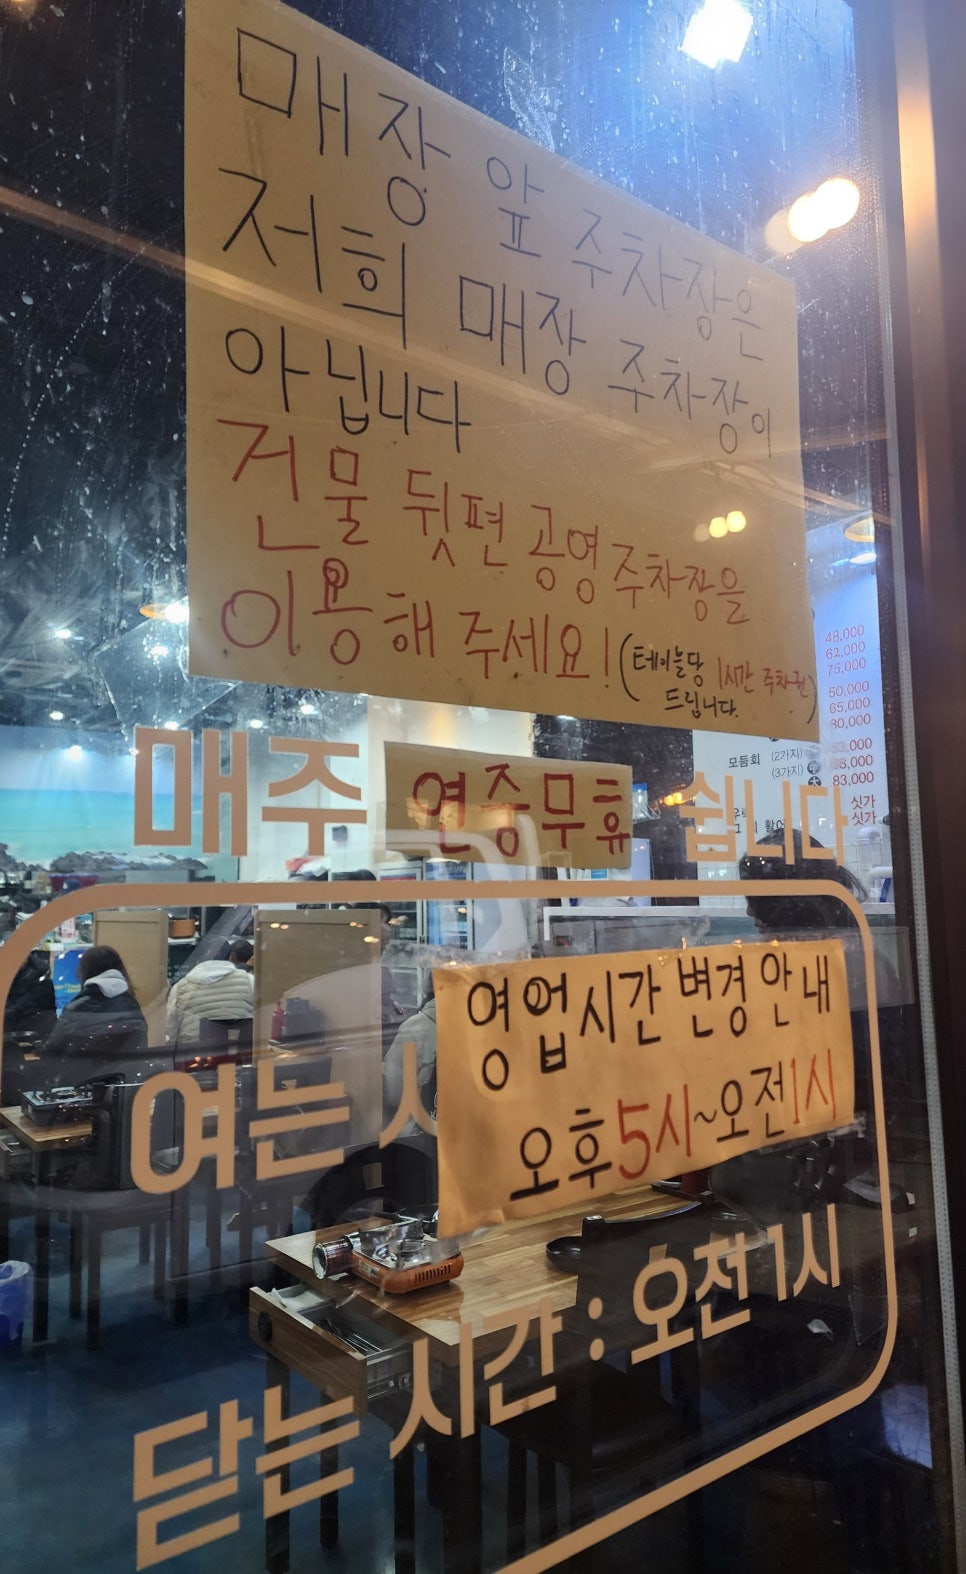 매장 앞 주차장은
저희 매장 주차장이
아닙니다
건물 뒷편 공영주차장을
이용해 주세요! (테이블당 1시간 주차권)
드립니다.
매주 연중무휴 쉽니다
영업시간 변경 안내
오후5시~오전1시
여는 시
닫는 시간 : 오전1시
48,000
62,000
75,000
50,000
65,000
80,000
모듬회 (2가지) 中 68,000
(3가지) 大 83,000
싯가
싯가